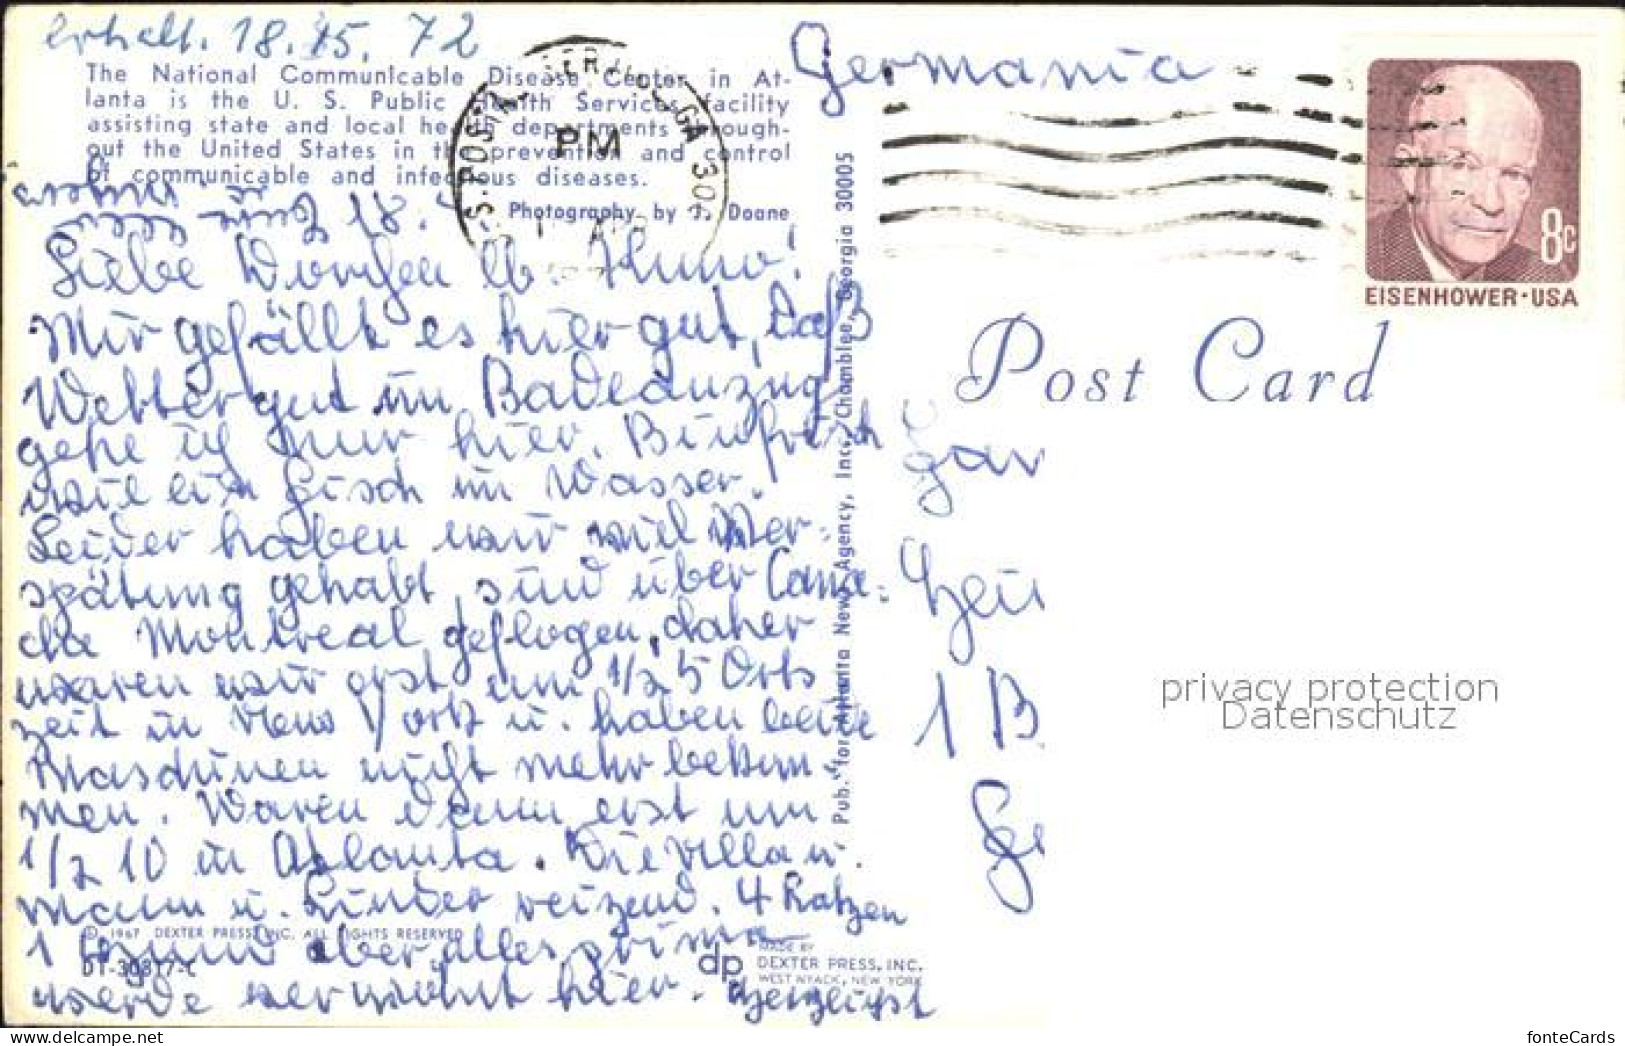 erhalt. 18. 5. 72
Germania
The National Communicable Disease Center in At-
lanta is the U. S. Public Health Services facility
assisting state and local health departments through-
out the United States in the prevention and control
of communicable and infectious diseases.
Photography by J. Doane
PM
EISENHOWER·USA
8c
Post Card
Liebe lb.
Mir gefällt es hier gut, daß
Wetter gut im Badeanzug
gehe ich nur hier. Bin frisch
wie ein Fisch im Wasser.
Leider haben wir viel Ver=
spätung gehabt, sind über Cana=
da Montreal geflogen, daher
waren wir erst um 1/2 5 Orts
zeit in New York u. haben keine
Maschinen nicht mehr bekom-
men. Waren dann erst um
1/2 10 in Atlanta. Die Villa u.
Mann u. Kinder reizend. 4 Katzen
1 Hund aber alles prima
werde verwöhnt hier. Herzlichst
Pub. for Atlanta News Agency, Inc., Chamblee, Georgia 30005
© 1967 DEXTER PRESS, INC. ALL RIGHTS RESERVED
DT-30817-C
dp
MADE BY
DEXTER PRESS, INC.
WEST NYACK, NEW YORK
1 B
privacy protection
Datenschutz
fonteCards